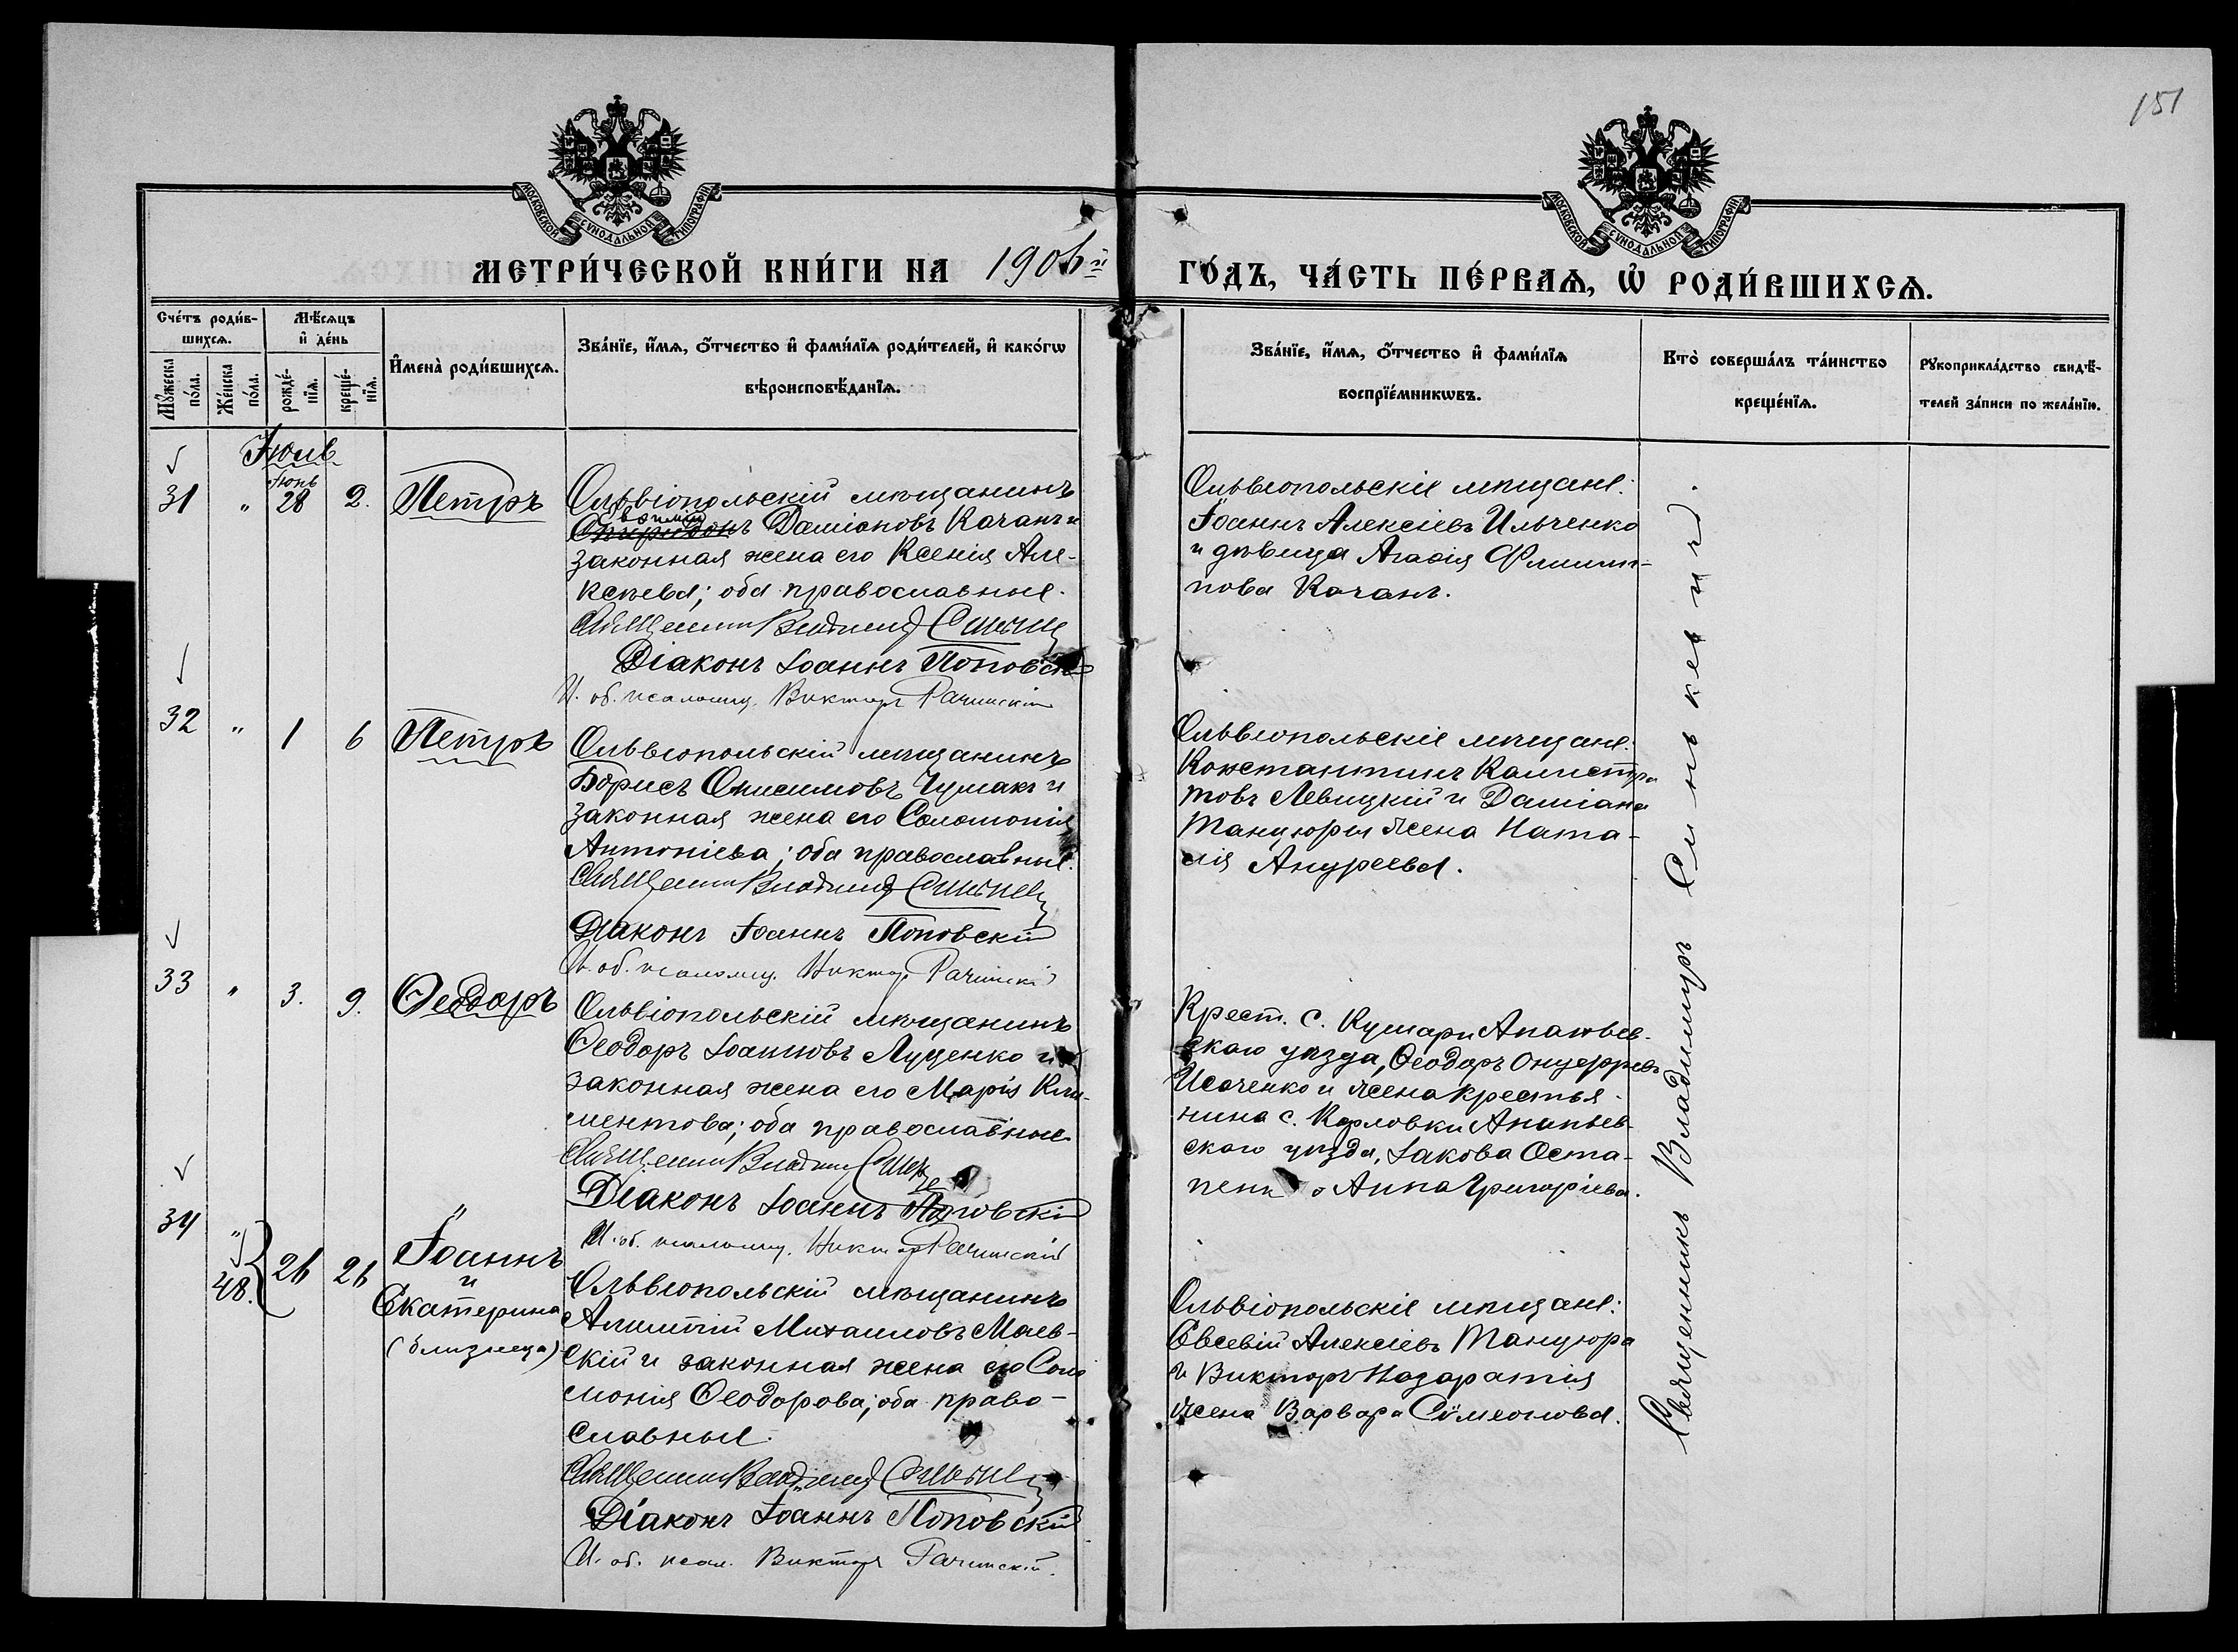 151
МОСКОВСКОЙ СУНОДАЛЬНОЙ ТИПОГРАФІИ
МОСКОВСКОЙ СУНОДАЛЬНОЙ ТИПОГРАФІИ
МЕТРИ́ЧЕСКОЙ КНИ́ГИ НА 1906й ГО́ДЪ, ЧА́СТЬ ПЕ́РВАѦ, Ѡ҆ РОДИ́ВШИХСѦ.
Сче́тъ роди́в-
шихсѧ.
Мꙋ́жеска по́ла.
Же́нска по́ла.
Мѣ́сѧцъ
и҆ де́нь
рожде́-нїѧ.
креще́-нїѧ.
И҆мена̀ роди́вшихсѧ.
Зва́нїе, и҆́мѧ, ѻ҆́тчество и҆ фами́лїѧ роди́телей, и҆ како́гѡ
вѣроисповѣ́данїѧ.
Зва́нїе, и҆́мѧ, ѻ҆́тчество и҆ фами́лїѧ
воспрїе́мникѡвъ.
Кто̀ соверша́лъ та́инство
креще́нїѧ.
Рꙋкоприкла́дство свидѣ́-
телей за́писи по жела́нїю.
Іюль
31 " Іюнь 28 2. Петръ
Ольвіопольскій мѣщанинъ
Даміановъ Качанъ и
законная жена его Ксенія Але-
ксѣева; оба православные.
Священникъ Владимир
Діаконъ Іоаннъ Поповскій
И. об. псаломщ. Викторъ Рачинскій
Ольвіопольскіе мѣщане:
Іоаннъ Алексіевъ Ильченко
и дѣвица Агафія Филип-
пова Качанъ.
32 " 1 6 Петръ
Ольвіопольскій мѣщанинъ
Борисъ Онисимовъ Чумакъ и
законная жена его Соломонія
Антоніева; оба православные.
Священникъ Владимир
Діаконъ Іоаннъ Поповскій
И. об. псаломщ. Викторъ Рачинскій
Ольвіопольскіе мѣщане:
Константинъ Калистра
товъ Левицкій и Даміана
Танцюры жена Ната-
лія Андреева.
33 " 3. 9. Ѳеодоръ
Ольвіопольскій мѣщанинъ
Ѳеодоръ Іоанновъ Луценко и
законная жена его Марія Кли-
ментова; оба православные.
Священникъ Владимир
Діаконъ Іоаннъ Поповскій
И. об. псаломщ. Викторъ Рачинскій
Крест. с. Кумари Ананьев-
скаго уѣзда, Ѳеодоръ Онуфріевъ
Исаченко и жена крестья-
нина с. Карловки Ананьев-
скаго уѣзда, Іакова Оста-
пенко Анна Григоріева.
34 " 48. 26 26
Іоаннъ
и
Екатерина
(близнецы)
Ольвіопольскій мѣщанинъ
Алимпій Михаиловъ Маев-
скій и законная жена его Соло
монія Ѳеодорова; оба право-
славные.
Священникъ Владимир
Діаконъ Іоаннъ Поповскій
И. об. псал. Викторъ Рачинскій.
Ольвіопольскіе мѣщане:
Евсевій Алексіевъ Танцюра
и Викторъ Назаратія
жена Варвара Сѵмеонова.
Священникъ Владимиръ Синькевичъ.